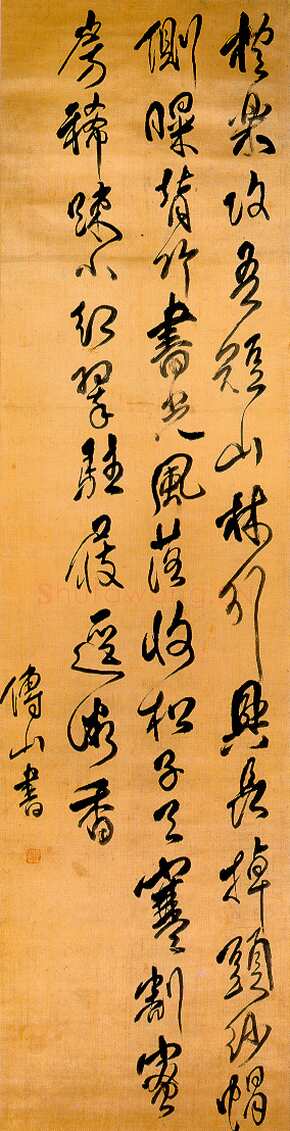 礼樂攻吾短山林引興長掉頭紗帽
側曝背竹書光風落收松子天寒割蜜
房稀疎小紅翠駐屐微香
傅山書